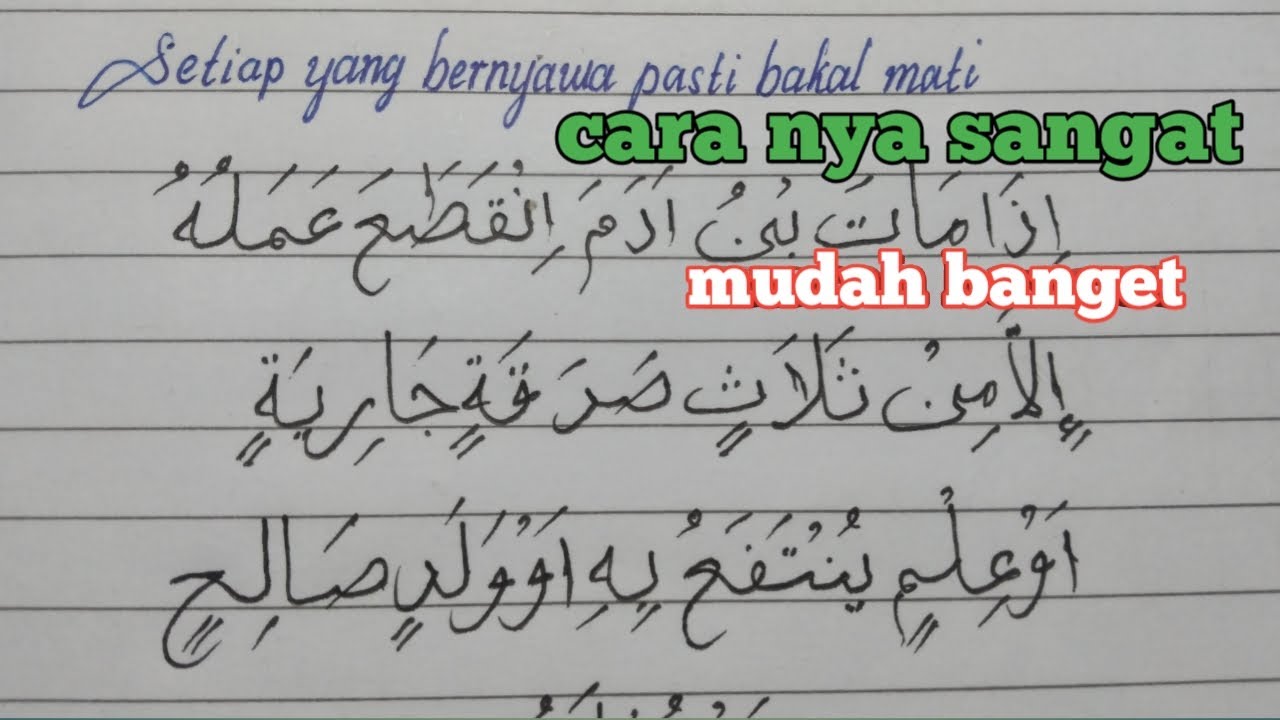 Setiap yang bernyawa pasti bakal mati
cara nya sangat
اِذَا مَاتَ بُنُ اَدَمَ اِنْقَطَعَ عَمَلُهُ
mudah banget
إِلاَّ مِنْ ثَلَاثٍ صَدَقَةٍ جَارِيَةٍ
اَوْعِلْمٍ يُنْتَفَعُ بِهِ اَوْوَلَدٍ صَالِحٍ